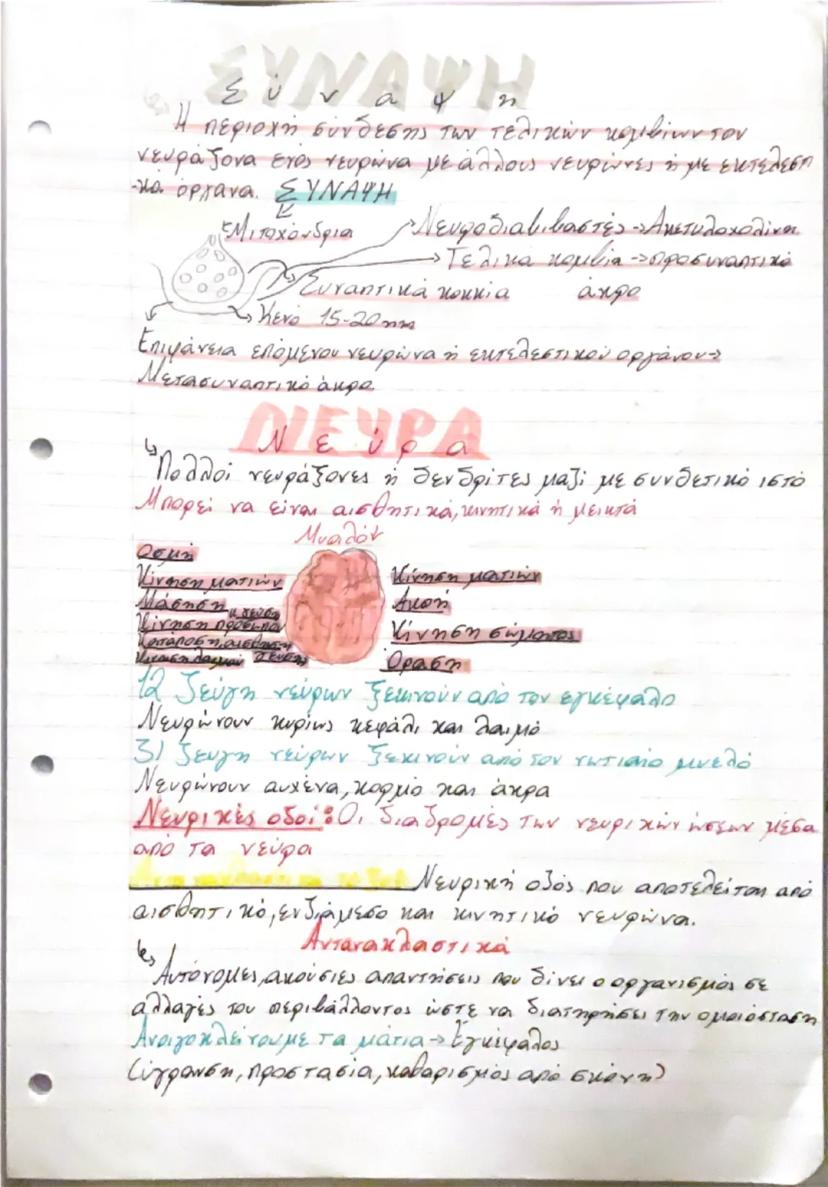 ΣΥΝΑΨΗ
Σύναψη
Η περιοχή σύνδεσης των τελικών κομβίων του
νευράξονα ενός νευρώνα με άλλους νευρώνες ή με εκτελεστι
-κά όργανα. ΣΥΝΑΨΗ
Μιτοχόνδρια
Νευροδιαβιβαστές→Ακετυλοχολίνη
Τελικά κομβία→προσυναπτικό
άκρο
Συναπτικά κοκκία
Κενό 15-20nm
Επιφάνεια επόμενου νευρώνα ή εκτελεστικού οργάνου→
Μετασυναπτικό άκρο
ΝΕΥΡΑ
Νεύρα
Πολλοί νευράξονες ή δενδρίτες μαζί με συνδετικό ιστό
Μπορεί να είναι αισθητικά, κινητικά ή μεικτά
Μυαλόν
Οσμή
Κίνηση ματιών
Μάσηση
Κίνηση προσώπου κ γεύση
Κατάποση, αισθηση
Κίνηση λαιμού γεύση
Κίνηση ματιών
Ακοή
Κίνηση σώματος
Όραση
12 ζεύγη νεύρων ξεκινούν από τον εγκέφαλο
Νευρώνουν κυρίως κεφάλι και λαιμό
31 ζευγη νεύρων ξεκινούν από τον νωτιαίο μυελό
Νευρώνουν αυχένα, κορμό και άκρα
Νευρικές οδοί: Οι διαδρομές των νευρικών ώσεων μέσα
από τα νεύρα
Νευρική οδός που αποτελείται από
αισθητικό, ενδιάμεσο και κινητικό νευρώνα.
Αντανακλαστικά
Αυτόνομες, ακούσιες απαντήσεις που δίνει ο οργανισμός σε
αλλαγές του περιβάλλοντος ώστε να διατηρήσει την ομοιόσταση
Ανοιγοκλείνουμε τα μάτια→Εγκέφαλος
(ύγρανση, προστασία, καθαρισμός από σκόνη)